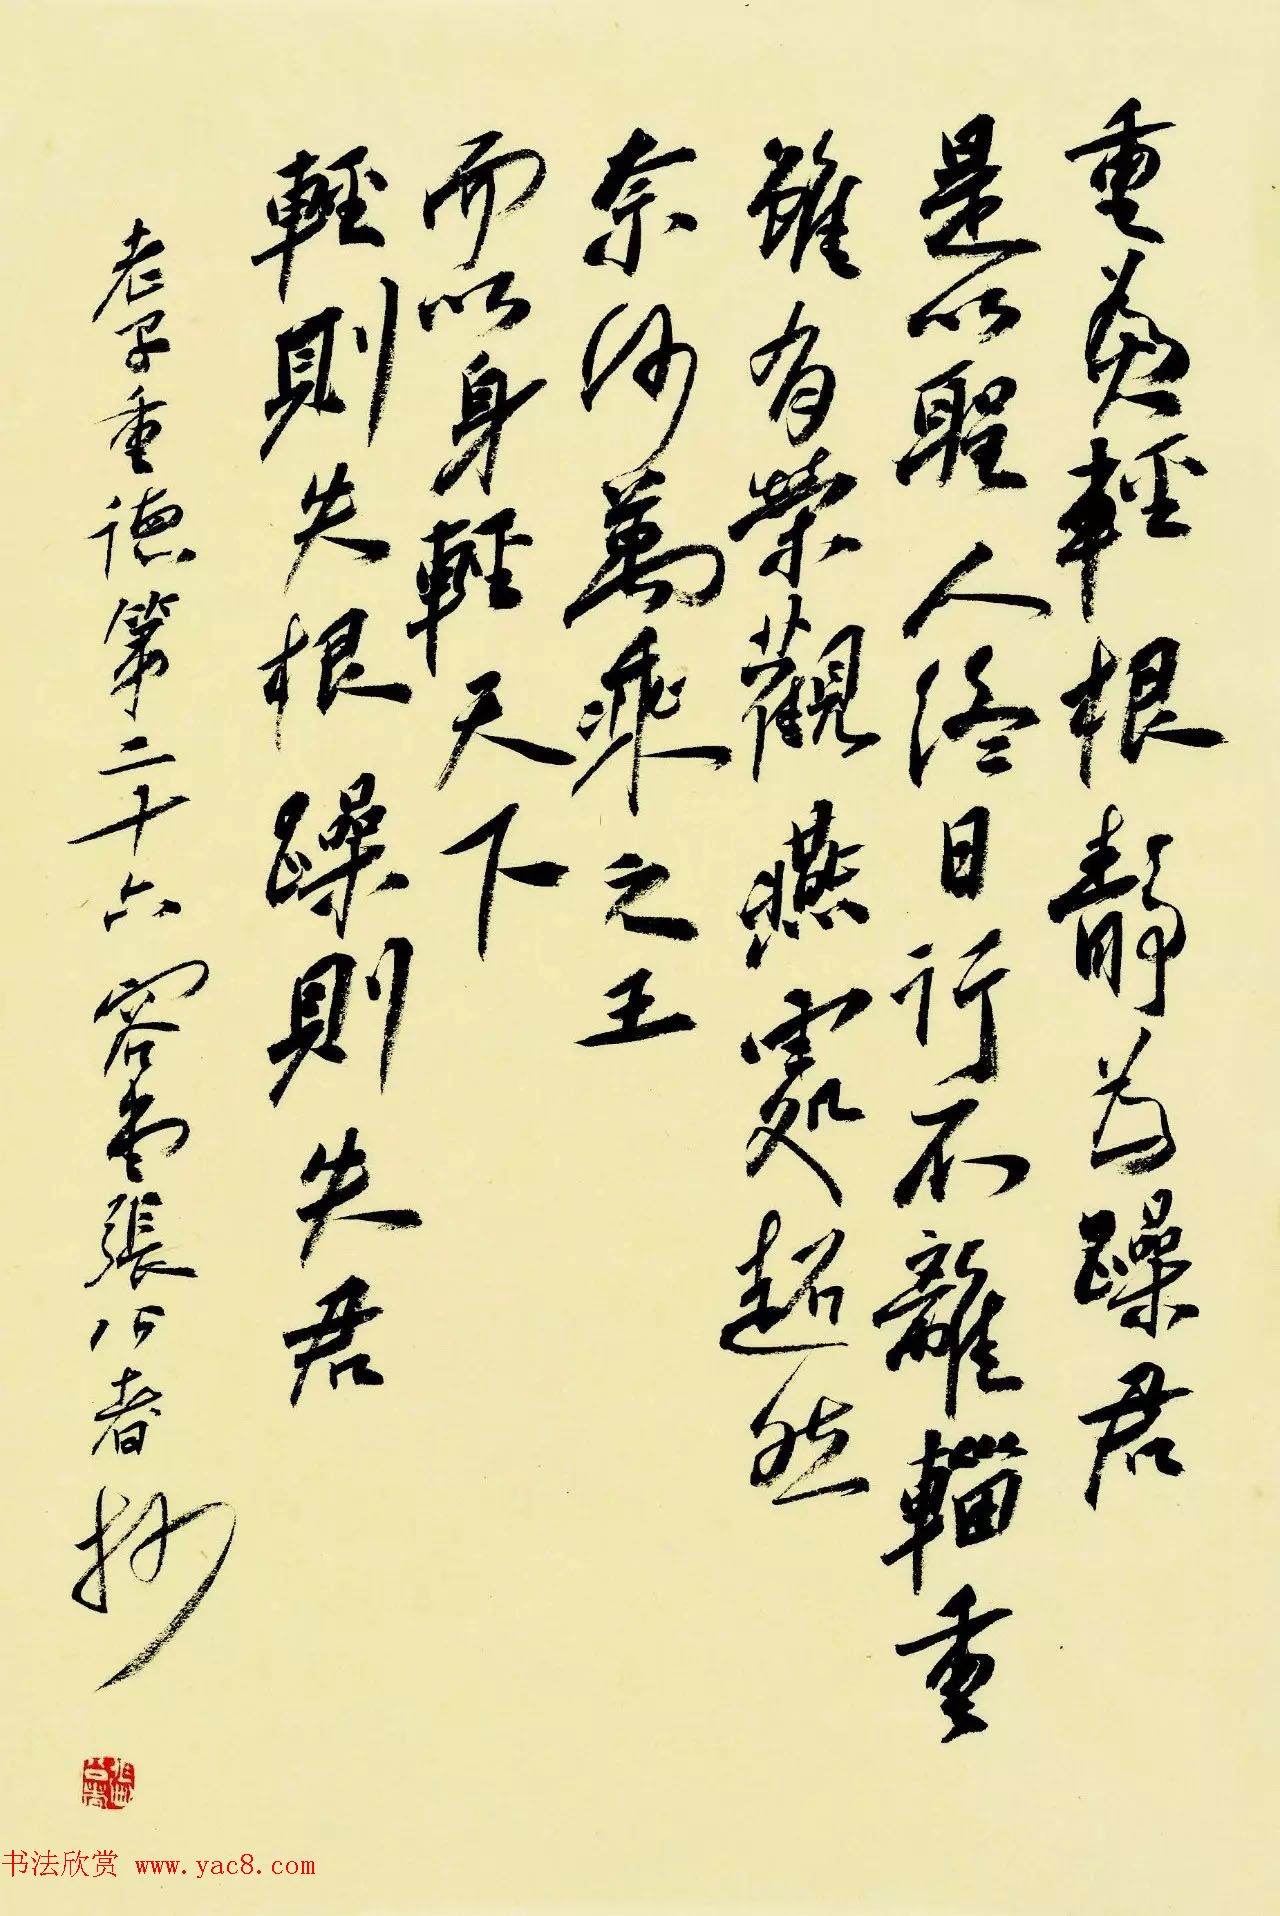 重為輕根靜为躁君
是以聖人終日行不離輜重
雖有榮觀燕處超然
奈何萬乘之王
而以身輕天下
輕則失根躁則失君
老子重德第二十六容堂張公者抄
书法欣赏 www.yac8.com